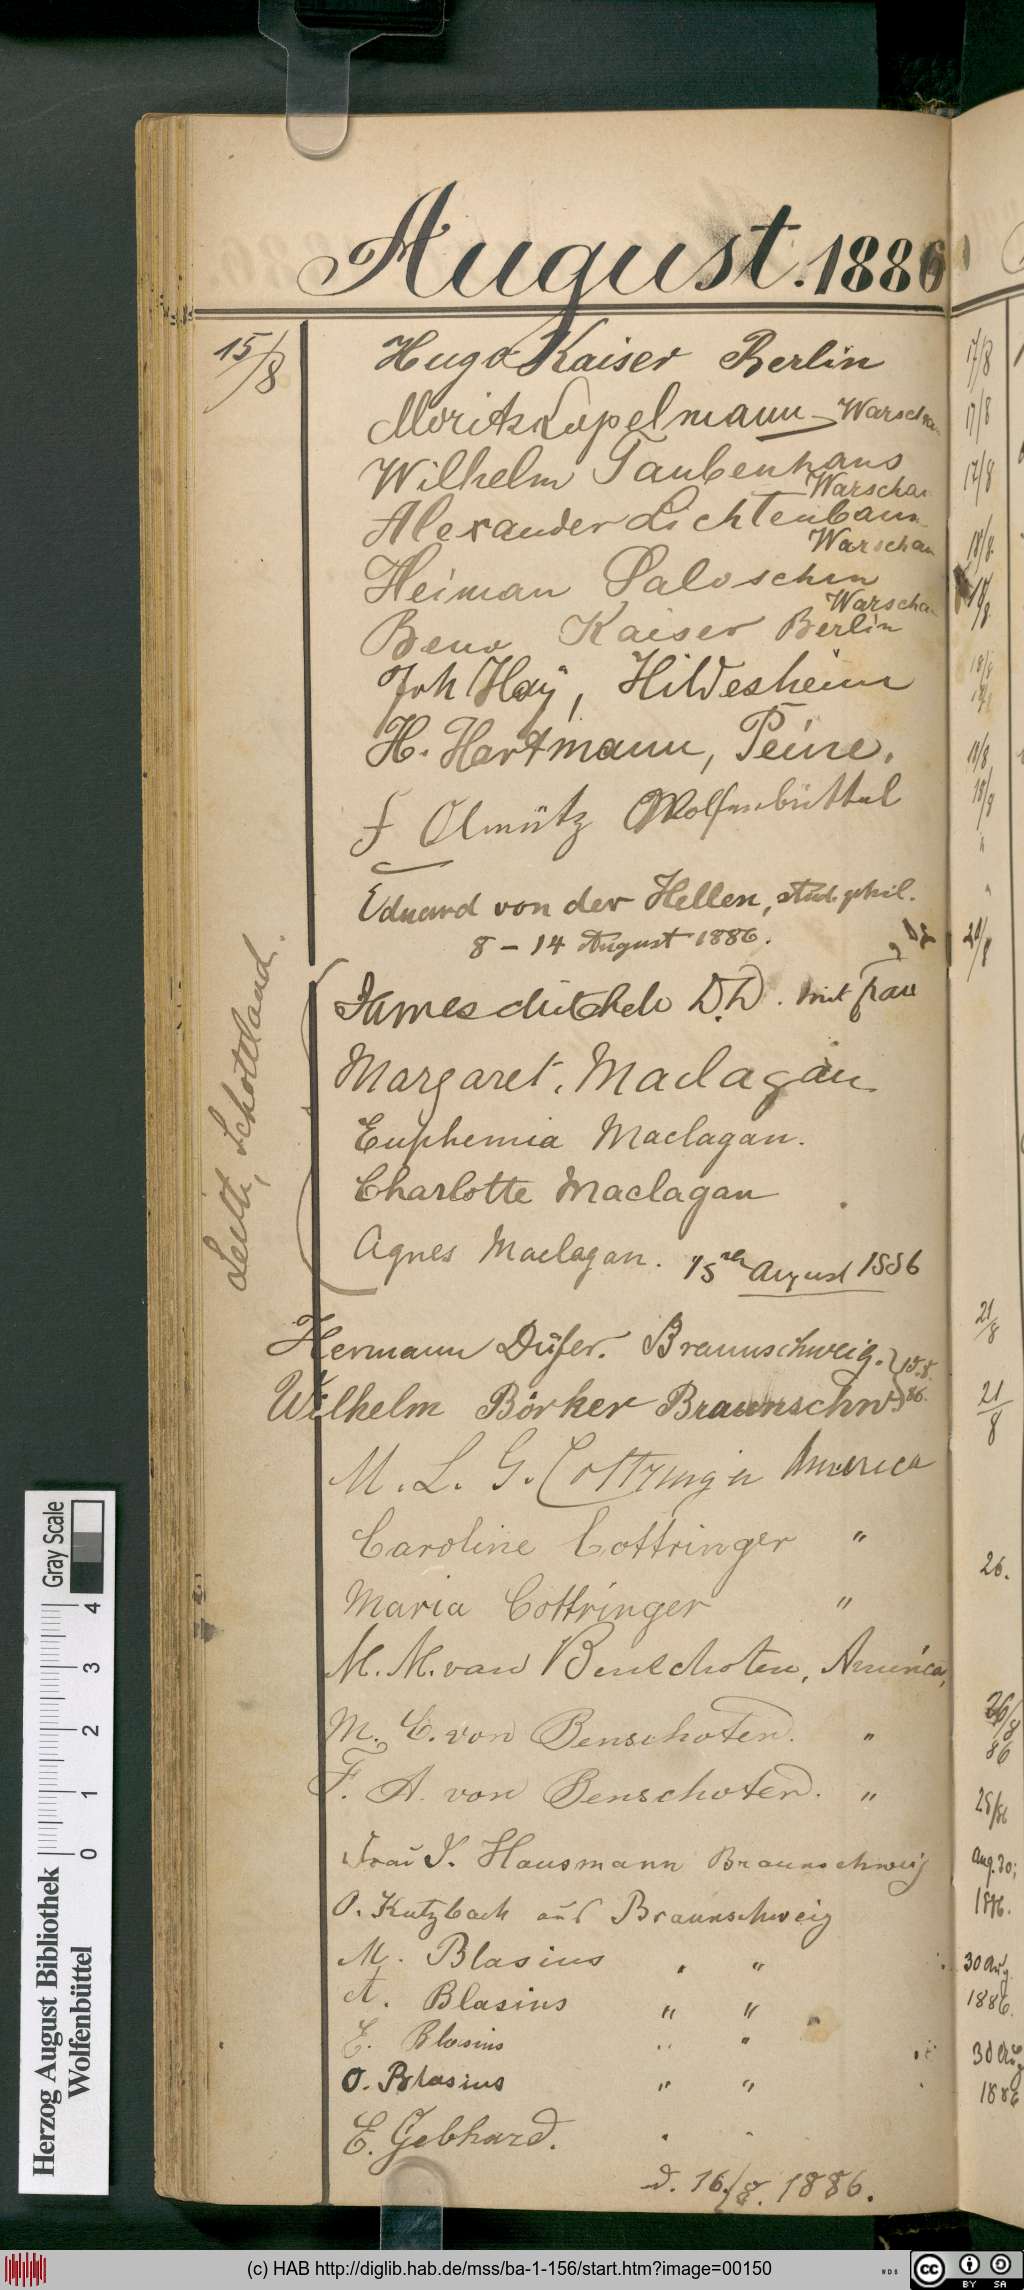 August. 1886
15/8
Hugo Kaiser Berlin
Moritz Kopelmann Warschau
Wilhelm Taubenhaus
Warschau
Alexander Lichtenbaum
Warschau
Heiman Saloschin
Warschau
Beno Kaiser Berlin
Joh Hoÿ, Hildesheim
H. Hartmann, Peine.
F Olmütz Wolfenbüttel
Eduard von der Hellen, stud. phil.
8 – 14 August 1886.
James Mitchell D.D. mit Frau
Margaret. Maclagan
Euphemia Maclagan.
Charlotte Maclagan
Agnes Maclagan. 15ten August 1886
Leith, Schottland.
Hermann Düfer. Braunschweig. 15.8.
Wilhelm Börker Braunschw. 86.
M. L. G. Cottringer America
Caroline Cottringer "
Maria Cottringer "
M. M. van Benschoten, America,
M. C. von Benschoten. "
F. A. von Benschoten. "
Frau J. Hausmann Braunschweig
O. Kutzbach aus Braunschweig
M. Blasius " "
A. Blasius " "
E. Blasius " "
O. Blasius " "
E. Gebhard.
d. 16/8. 1886.
17/8
17/8
17/8
18/8
18/8
18/8
18/8
18/8
20/8
21/8
21/8
26.
26/8
86
28/86
Aug. 30;
1886.
30 Aug.
1886.
30 Aug
1886
Herzog August Bibliothek
Wolfenbüttel
Gray Scale
0 1 2 3 4
(c) HAB http://diglib.hab.de/mss/ba-1-156/start.htm?image=00150
cc BY SA